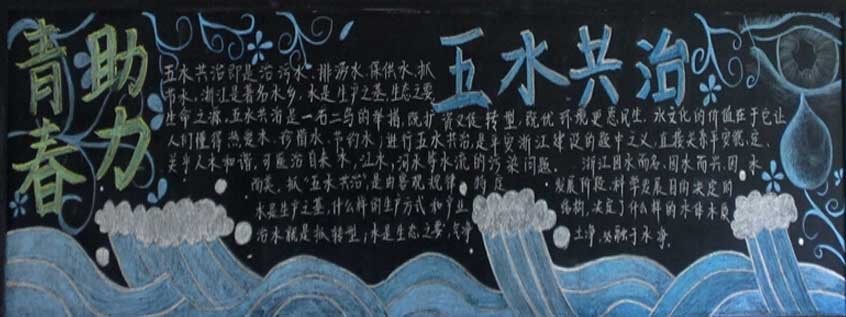 青春
助力
五水共治
五水共治即是治污水、排涝水、保供水、抓
节水。浙江是著名水乡,水是生产之基,生态之要,
生命之源。五水共治是一石二鸟的举措,既扩 资又促 转型,既优 环境更惠民生。水文化的价值在于它让
人们懂得热爱水、珍惜水、节约水,进行五水共治,是平安浙江建设的题中之义,直接关系平安稳定、
关乎人水和谐,可医治自来水,江水,河水等水流的污染问题。 浙江因水而名,因水而兴,因 水
而美。抓“五水共治”,是由客观规律 的 发展阶段,科学发展目的决定的
水是生产之基,什么样的生产方式和产业 结构,决定了什么样的水体水质
治水就是抓转型;水是生态之要,气净 土净,必融于水净。